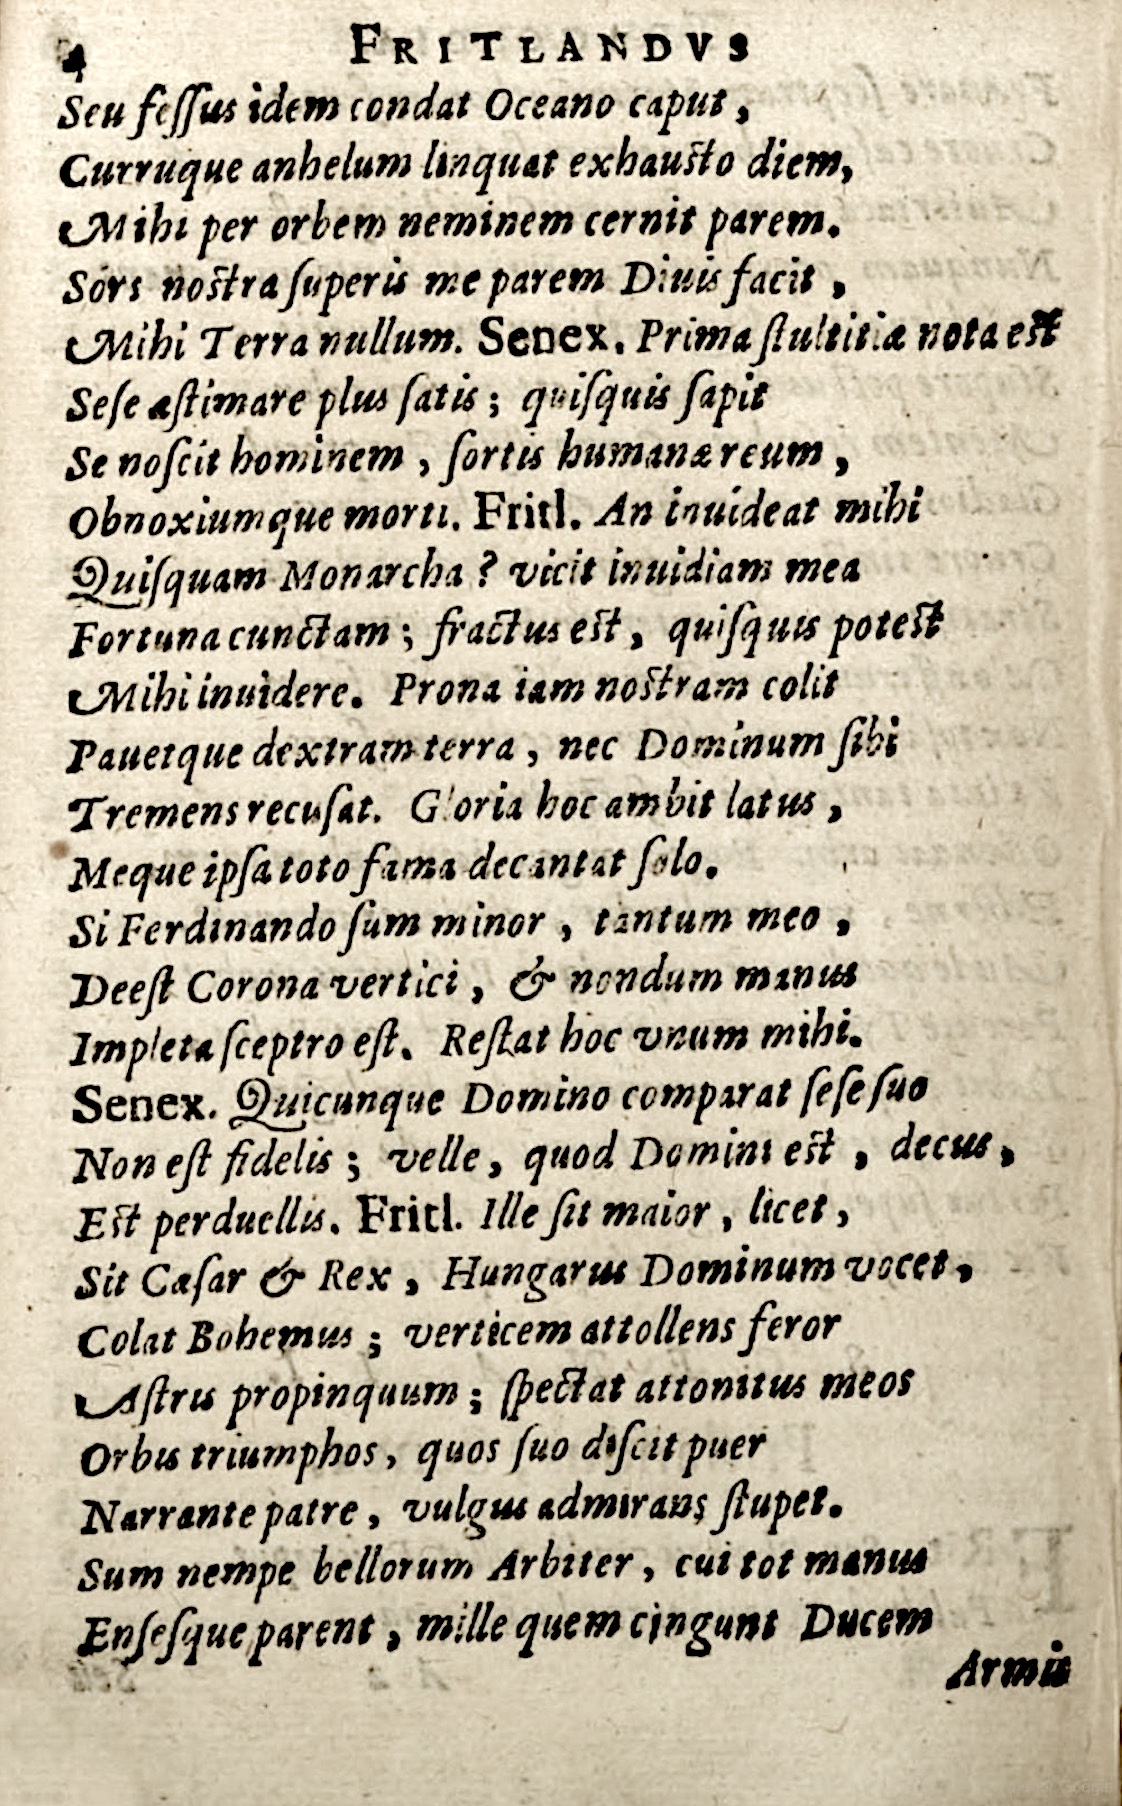 4 FRITLANDVS
Seu feſſus idem condat Oceano caput,
Curruque anhelum linquat exhausto diem,
Mihi per orbem neminem cernit parem.
Sors nostra ſuperis me parem Diuis facit,
Mihi Terra nullum. Senex. Prima ſtultitiæ nota est
Seſe æſtimare plus ſatis; quiſquis ſapit
Se noſcit hominem, ſortis humanæ reum,
Obnoxiumque morti. Fritl. An inuideat mihi
Quiſquam Monarcha? vicit inuidiam mea
Fortuna cunctam; fractus est, quiſquis potest
Mihi inuidere. Prona iam nostram colit
Pauetque dextram terra, nec Dominum ſibi
Tremens recuſat. Gloria hoc ambit latus,
Meque ipſa toto fama decantat ſolo.
Si Ferdinando ſum minor, tantum meo,
Deeſt Corona vertici, & nondum manus
Impleta ſceptro eſt. Reſtat hoc vnum mihi.
Senex. Quicunque Domino comparat ſeſe ſuo
Non eſt fidelis; velle, quod Domini est, decus,
Est perduellis. Fritl. Ille ſit maior, licet,
Sit Cæſar & Rex, Hungarus Dominum vocet,
Colat Bohemus; verticem attollens feror
Aſtris propinquum; ſpectat attonitus meos
Orbis triumphos, quos ſuo diſcit puer
Narrante patre, vulgus admirans ſtupet.
Sum nempe bellorum Arbiter, cui tot manus
Enſeſque parent, mille quem cingunt Ducem
Armis